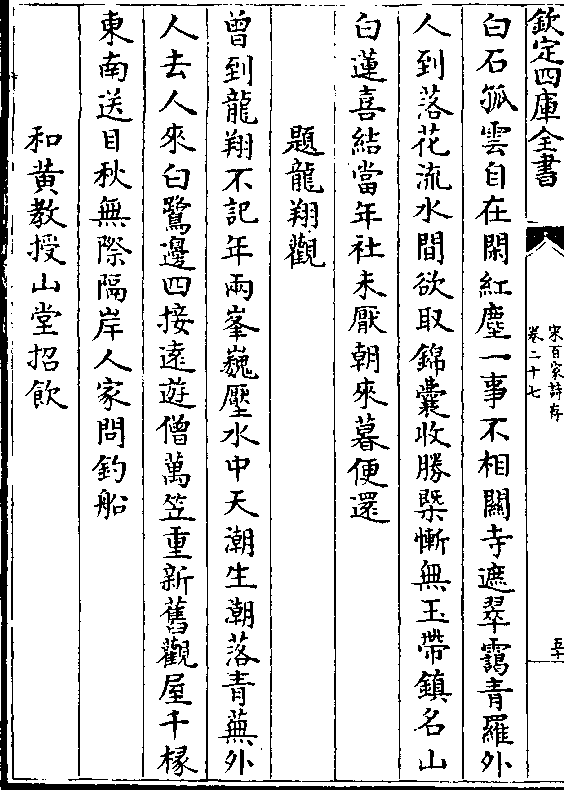 欽定四庫全書
宋百家詩存
卷二十七
五十
白石孤雲自在閑紅塵一事不相關寺遮翠靄青羅外
人到落花流水間欲取錦囊收勝槩慚無玉帶鎮名山
白蓮喜結當年社未厭朝來暮便還
題龍翔觀
曾到龍翔不記年兩峯巍壓水中天潮生潮落青蕪外
人去人來白鷺邊四接遠遊僧萬笠重新舊觀屋千椽
東南送目秋無際隔岸人家問釣船
和黃教授山堂招飲